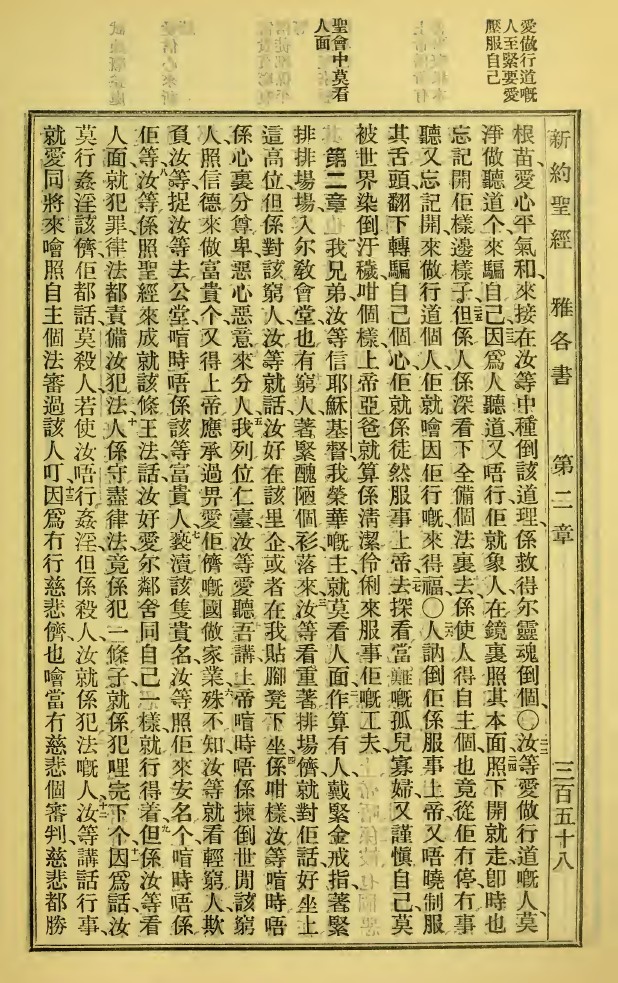 愛做行道嘅
人至緊要愛
壓服自己
聖會中莫看
人面
新約聖經 雅各書 第二章 三百五十八
根苗愛心平氣和來接在汝等中種倒該道理係救得尔靈魂倒個〇汝等愛做行道嘅人莫
淨做聽道个來騙自己因爲人聽道又唔行佢就象人在鏡裏照其本面照下開就走卽時也
忘記開佢樣邊樣子但係人係深看下全備個法裏去係使人得自主個也竟從佢冇停冇事
聽又忘記開來做行道個人佢就噲因佢行嘅來得福〇人訥倒佢係服事上帝又唔曉制服
其舌頭翻下轉騙自己個心佢就係徒然服事上帝去探看當難嘅孤兒寡婦又謹愼自己莫
被世界染倒汙穢咁個樣上帝亞爸就算係淸潔伶俐來服事佢嘅工夫
第二章 一我兄弟汝等信耶穌基督我榮華嘅主就莫看人面二作算有人戴緊金戒指著緊
排排場場入尔敎會堂也有窮人著緊醜陋個衫落來三汝等看重著排場儕就對佢話好坐上
這高位但係對該窮人汝等就話汝好在該里企或者在我貼腳凳下坐四係咁樣汝等喧時唔
係心裏分尊卑惡心惡意來分人五我列位仁臺汝等愛聽吾講上帝喧時唔係揀倒世閒該窮
人照信德來做富貴个又得上帝應承過畀愛佢儕嘅國做家業殊不知六汝等就看輕窮人欺
負汝等捉汝等去公堂喧時唔係該等富貴人七褻瀆該隻貴名汝等照佢來安名个喧時唔係
佢等八汝等係照聖經來成就該條王法話汝好愛尔鄰舍同自己一樣就行得着九但係汝等看
人面就犯罪律法都責備汝犯法十人係守盡律法竟係犯一條子就係犯哩完下个十一因爲話汝
莫行姦淫該儕佢都話莫殺人若使汝唔行姦淫但係殺人汝就係犯法嘅人十二汝等講話行事
就愛同將來噲照自主個法審過該人叮十三因爲冇行慈悲儕也噲當冇慈悲個審判慈悲都勝